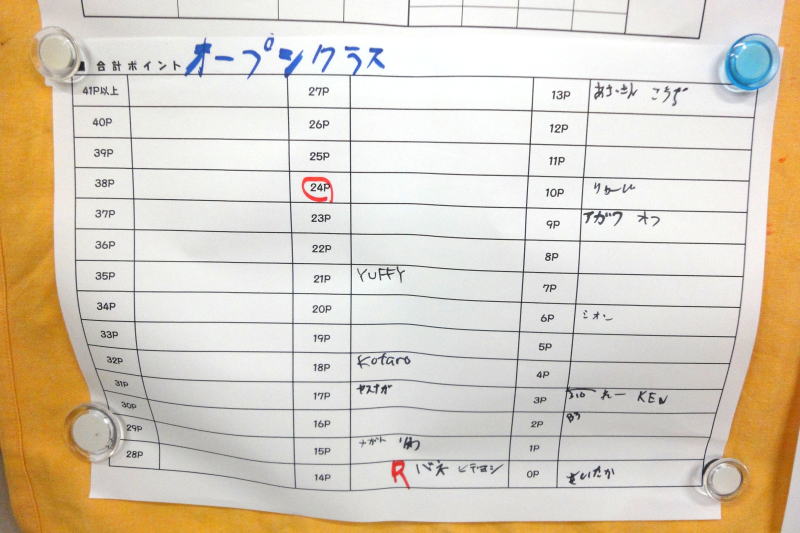 合計ポイント オープンクラス
41P以上
40P
39P
38P
37P
36P
35P
34P
33P
32P
31P
30P
29P
28P
27P
26P
25P
24P
23P
22P
21P YUFFY
20P
19P
18P Kotaro
17P ヤスナガ
16P
15P ナガト
14P R バネ ヒデヨシ
13P こうじ
12P
11P
10P
9P アガワ オフ
8P
7P
6P シオン
5P
4P
3P れー KEN
2P
1P
0P さいたか